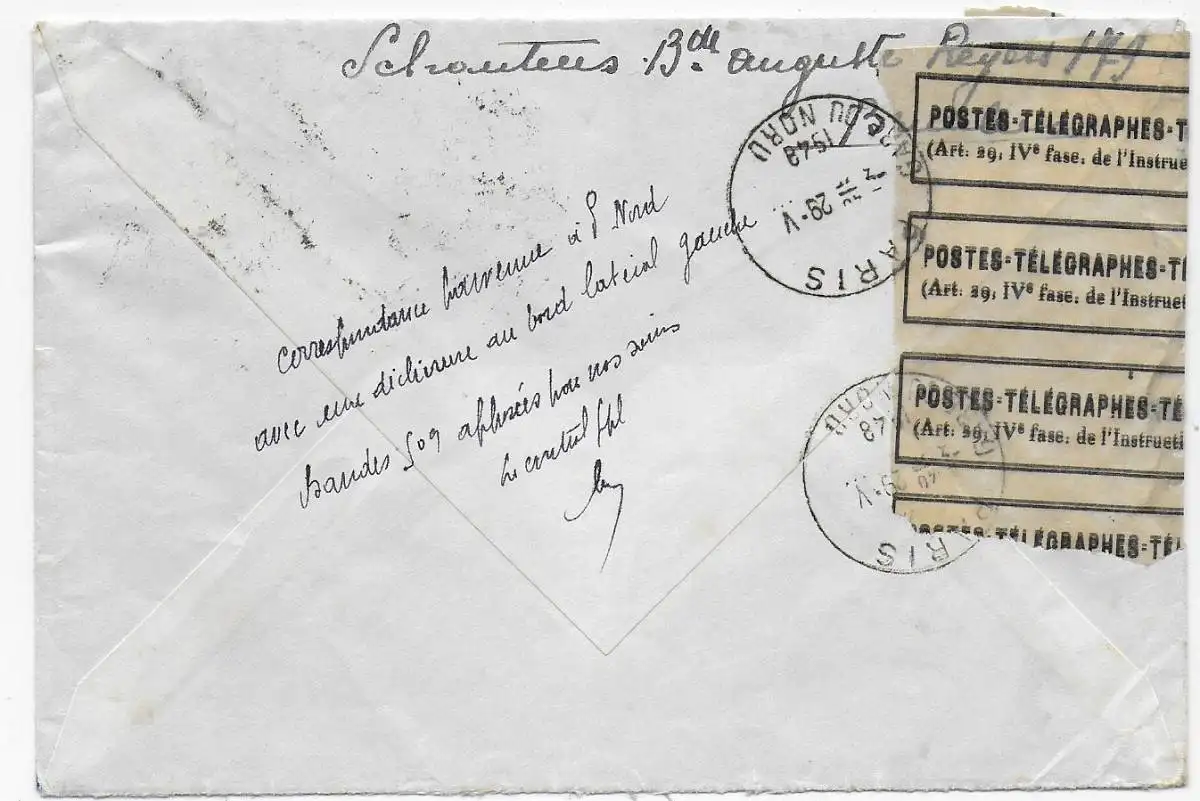 Schoutens Bd. auguste Reyers 179
POSTES-TÉLÉGRAPHES-T
(Art: 29, IVe fasc. de l'Instruc
POSTES-TÉLÉGRAPHES-TÉ
(Art: 29, IVe fasc. de l'Instructi
POSTES-TÉLÉGRAPHES-TÉ
(Art: 29, IVe fasc. de l'Instructi
POSTES-TÉLÉGRAPHES-TÉL
PARIS
GARE DU NORD
29-V
1948
PARIS
29-V
48
correspondance parvenue à P Nord
avec une déchirure au bord latéral gauche
bandes 509 apposées par nos soins
le control ppl